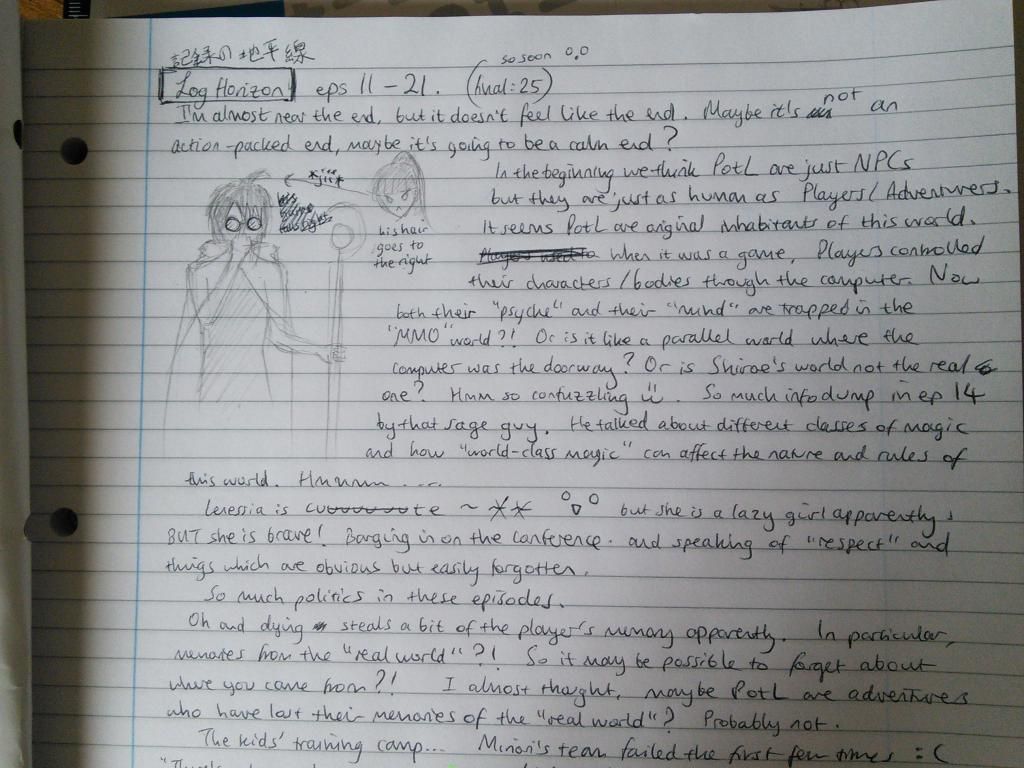 記録の地平線
so soon o.o
Log Horizon eps 11 – 21. (final: 25)
I'm almost near the end, but it doesn't feel like the end. Maybe it's not an
action-packed end, maybe it's going to be a calm end?
In the beginning we think PotL are just NPCs
but they are just as human as Players/Adventurers.
It seems PotL are original inhabitants of this world.
Players used to When it was a game, Players controlled
their characters/bodies through the computer. Now
both their "psyche" and their "mind" are trapped in the
"MMO" world?! Or is it like a parallel world where the
computer was the doorway? Or is Shiroe's world not the real
one? Hmm so confuzzling. So much infodump in ep 14
by that sage guy. He talked about different classes of magic
and how "world-class magic" can affect the nature and rules of
this world. Hmmmm ....
*jiii*
his hair
goes to
the right
Lenessia is cuuuuuuute ~ ** but she is a lazy girl apparently,
BUT she is brave! Barging in on the conference. and speaking of "respect" and
things which are obvious but easily forgotten.
So much politics in these episodes.
Oh and dying steals a bit of the player's memory apparently. In particular,
memories from the "real world"?! So it may be possible to forget about
where you came from?! I almost thought, maybe PotL are adventurers
who have lost their memories of the "real world"? Probably not.
The kids' training camp... Minori's team failed the first few times :(